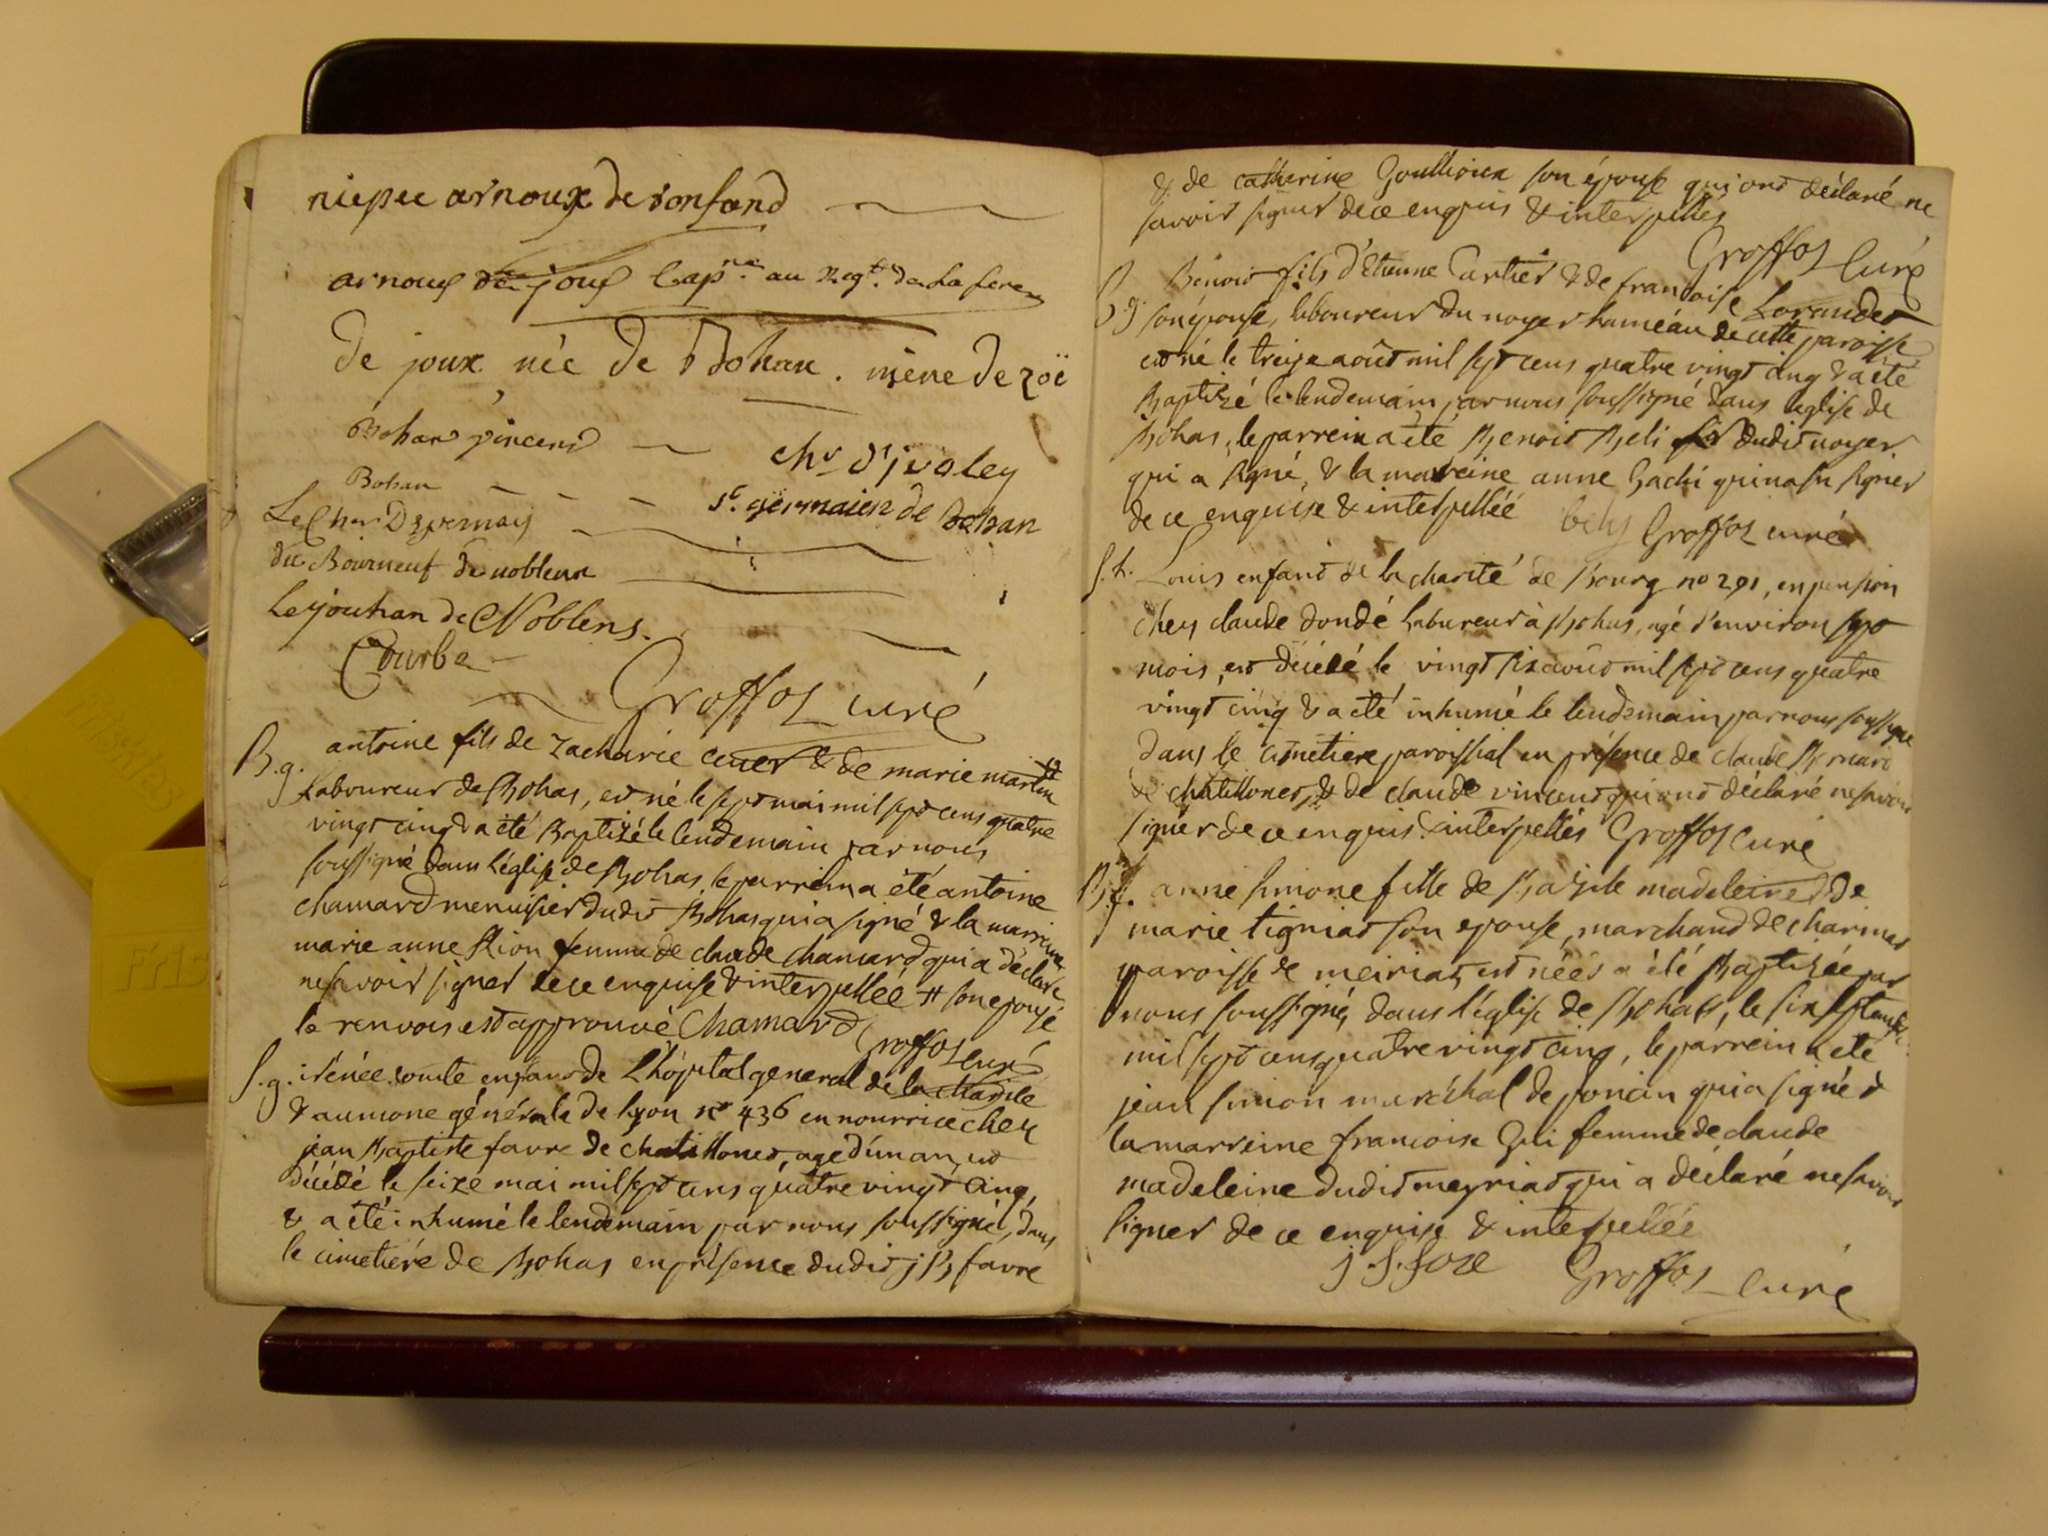 niepce arnoux de ronfand
arnoux de joux Capne au Regt. de La fere
De joux née De Bohan . mere de zoë
Bohan vincend
chr d'ivoley
Bohan
st. germain de Bohan
Le Chr Depernay
du Bourneuf de noblens
Lejouhan de Noblens.
Courbe
Groffoz curé
B.g. antoine fils de zacharie cuer & de marie martin #
Laboureur de Bohas, est né le sept mai mil sept cens quatre
vingt cinq & a été Baptizé le lendemain par nous
soussigné dans l'église de Bohas, le parrein a été antoine
chamard menuisier dudit Bohas qui a signé & la marreine
marie anne fion femme de claude chamard qui a déclaré
ne savoir signer de ce enquise & interpellée # son epouse
le renvois est approuvé Chamard Groffoz curé
S.g. irénée comte enfant de L'hôpital general de la charité
& aumone générale de lyon no 436 en nourrice chez
jean Baptiste favre de chatillonet, age d'un an, est
décédé le seize mai mil sept cens quatre vingt cinq,
& a été inhumé le lendemain par nous soussigné, dans
le cimetiere de Bohas en présence dudit j B favre
& de catherine Goullioux son épouse qui ont déclaré ne
savoir signer de ce enquis & interpellés
Groffoz Curé
B g. Benoit fils d'Etienne Cartier & de francoise Lorandet
son épouse, laboureur du noyer hameau de cette paroisse
est né le treize août mil sept cens quatre vingt cinq & a été
Baptizé le lendemain par nous soussigné dans l'eglise de
Bohas, le parrein a été Benoit Beli dudit noyer
qui a signé, & la marreine anne Gachi qui n'a su signer
de ce enquise & interpellée bely Groffoz curé
S. h. Louis enfant de la charité de Bourg no 291, en pension
chez claude dondé Laboureur à Bohas, agé d'environ sept
mois, est décédé le vingt six août mil sept cens quatre
vingt cinq & a été inhumé le lendemain par nous soussigné
dans le cimetiere paroissial en présence de claude Bernard
de chatillonet, & de claude vincent qui ont déclaré ne savoir
signer de ce enquis & interpellés Groffoz curé
B.f. anne simone fille de Bazile madeleine & de
marie tigniat son epouse, marchand de charinat
paroisse de meiriat, est née & a été Baptizée par
nous soussigné, dans l'église de Bohas, le six septembre
mil sept cens quatre vingt cinq, le parrein a été
jean simon maréchal de poncin qui a signé &
la marreine francoise Geli femme de claude
madeleine dudit meyriat qui a déclaré ne savoir
signer de ce enquise & interpellée
Groffoz curé